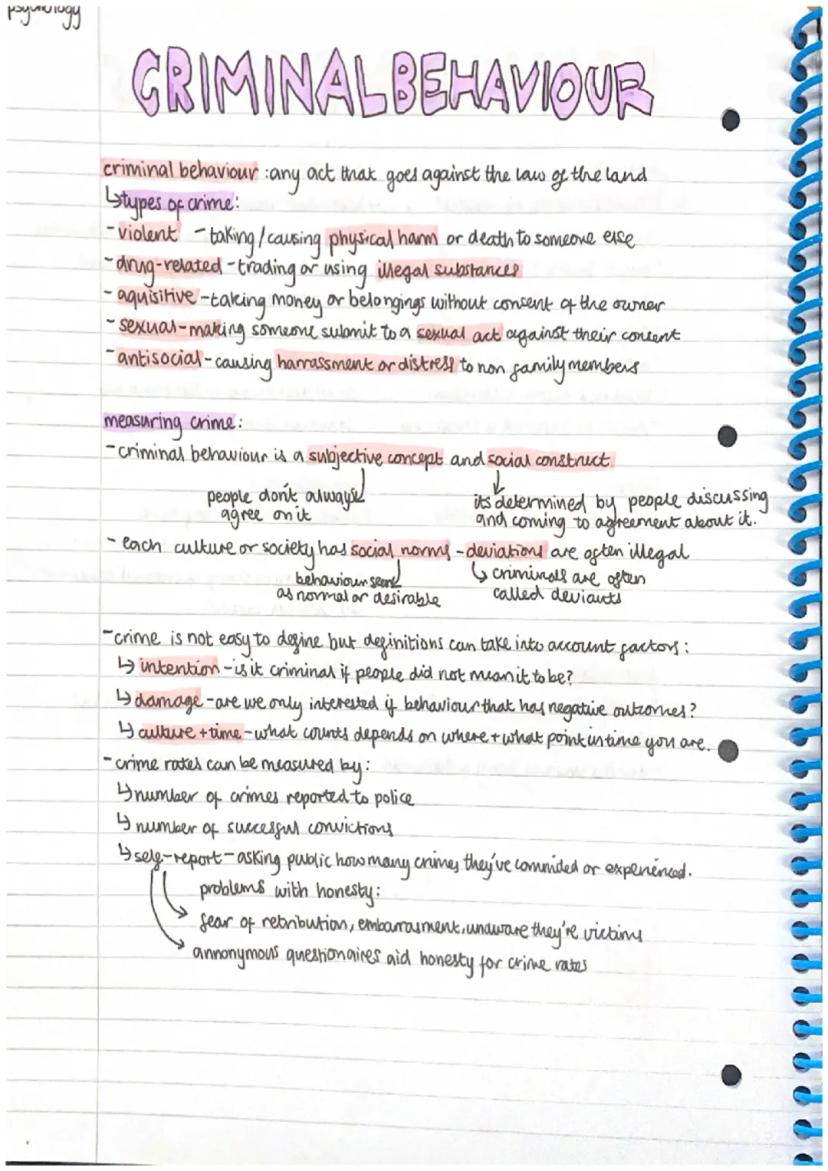 psychology
CRIMINAL BEHAVIOUR
criminal behaviour : any act that goes against the law of the land
↳types of crime:
- violent - taking/causing physical harm or death to someone else
- drug-related - trading or using illegal substances
- aquisitive - taking money or belongings without consent of the owner
- sexual - making someone submit to a sexual act against their consent
- antisocial - causing harrassment or distress to non family members
measuring crime:
- criminal behaviour is a subjective concept and social construct
people don't always agree on it
its determined by people discussing and coming to agreement about it.
- each culture or society has social norms - deviations are often illegal
behaviour seen as normal or desirable
↳ criminals are often called deviants
- crime is not easy to define but definitions can take into account factors:
↳ intention - is it criminal if people did not mean it to be?
↳ damage - are we only interested if behaviour that has negative outcomes?
↳ culture + time - what counts depends on where + what point in time you are.
- crime rates can be measured by:
↳ number of crimes reported to police
↳ number of successful convictions
↳ self-report - asking public how many crimes they've commided or experienced.
problems with honesty:
fear of retribution, embarrasment, unaware they're victims
annonymous questionaires aid honesty for crime rates